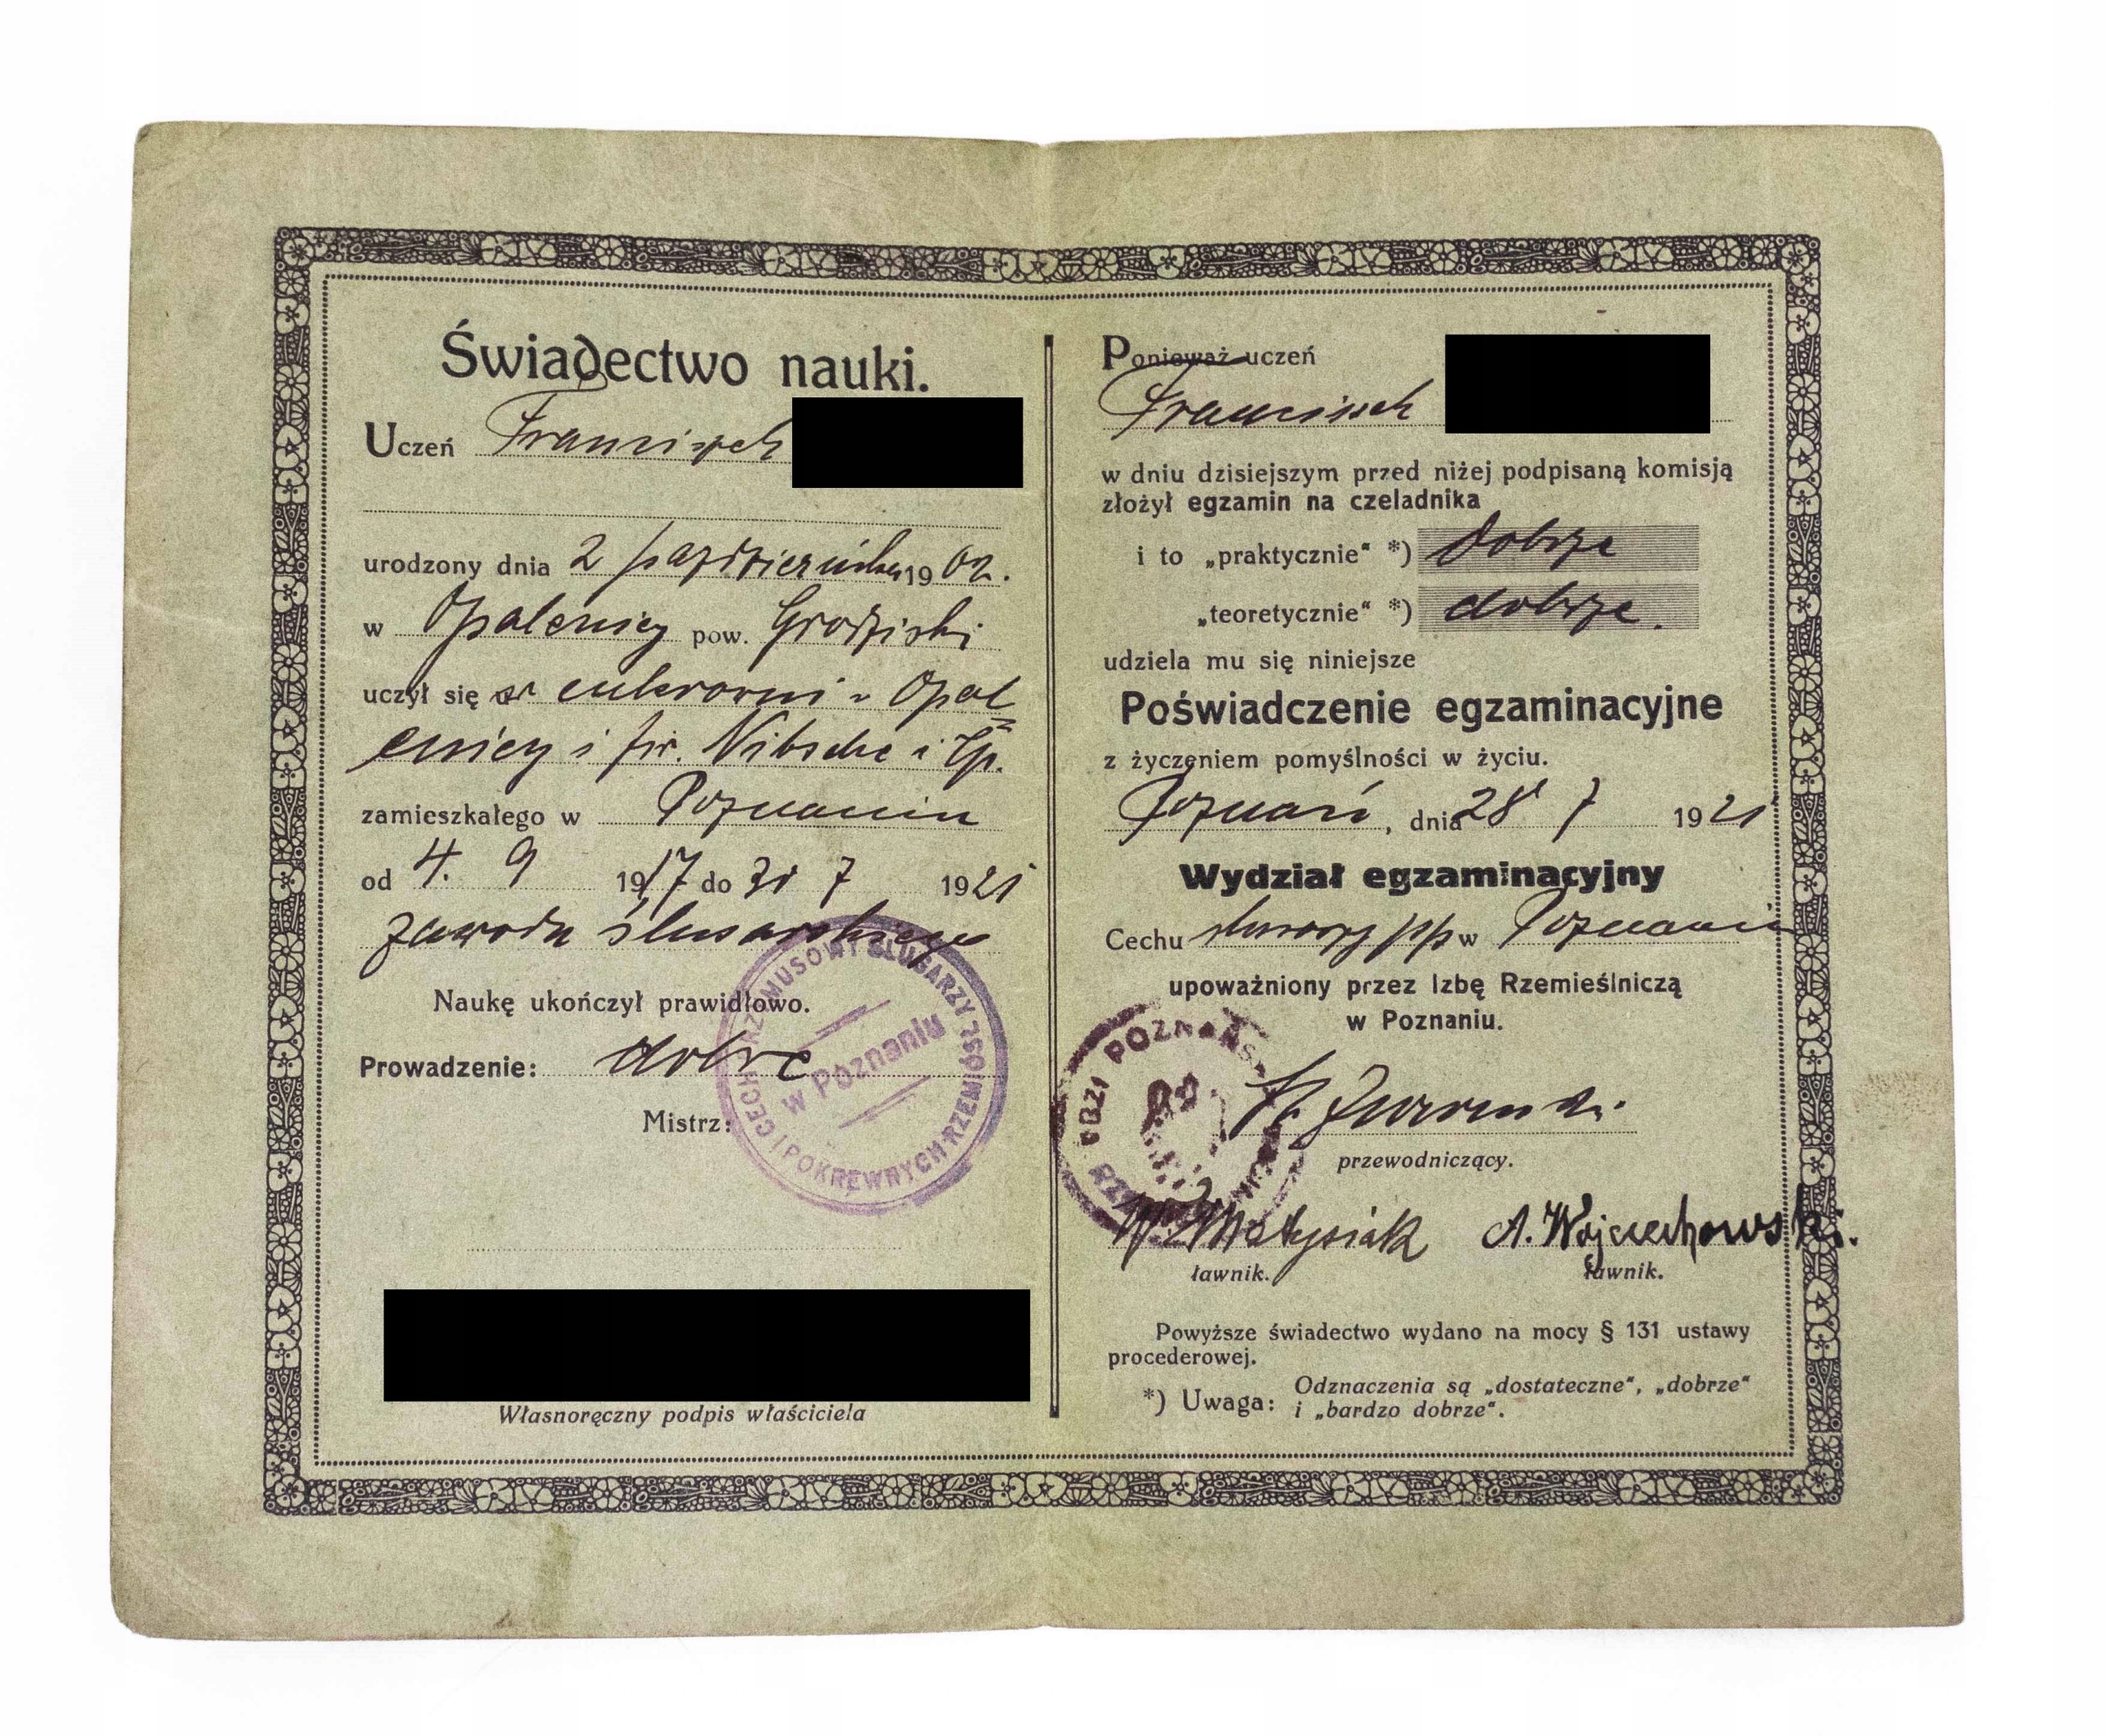 Świadectwo nauki.
Uczeń Franciszek
urodzony dnia 2 października 1902.
w Opalenicy pow. Grodziski
uczył się w cukrowni w Opal=
enicy i fir. Nitsche i Sp.
zamieszkałego w Poznaniu
od 4. 9 1917 do 31 7 1921
zawodu ślusarskiego
Naukę ukończył prawidłowo.
Prowadzenie: dobre
Mistrz:
CECH PRZYMUSOWY ŚLUSARZY I POKREWNYCH RZEMIOSŁ
w Poznaniu
Własnoręczny podpis właściciela
Ponieważ uczeń
Franciszek
w dniu dzisiejszym przed niżej podpisaną komisją
złożył egzamin na czeladnika
i to „praktycznie“ *) dobrze
„teoretycznie“ *) dobrze.
udziela mu się niniejsze
Poświadczenie egzaminacyjne
z życzeniem pomyślności w życiu.
Poznań, dnia 28 7 1921
Wydział egzaminacyjny
Cechu w Poznaniu
upoważniony przez Izbę Rzemieślniczą
w Poznaniu.
POZNAŃ
przewodniczący.
W. Matysiak A. Wojciechowski.
ławnik. ławnik.
Powyższe świadectwo wydano na mocy § 131 ustawy
procederowej.
*) Uwaga: Odznaczenia są „dostateczne“, „dobrze“
i „bardzo dobrze“.